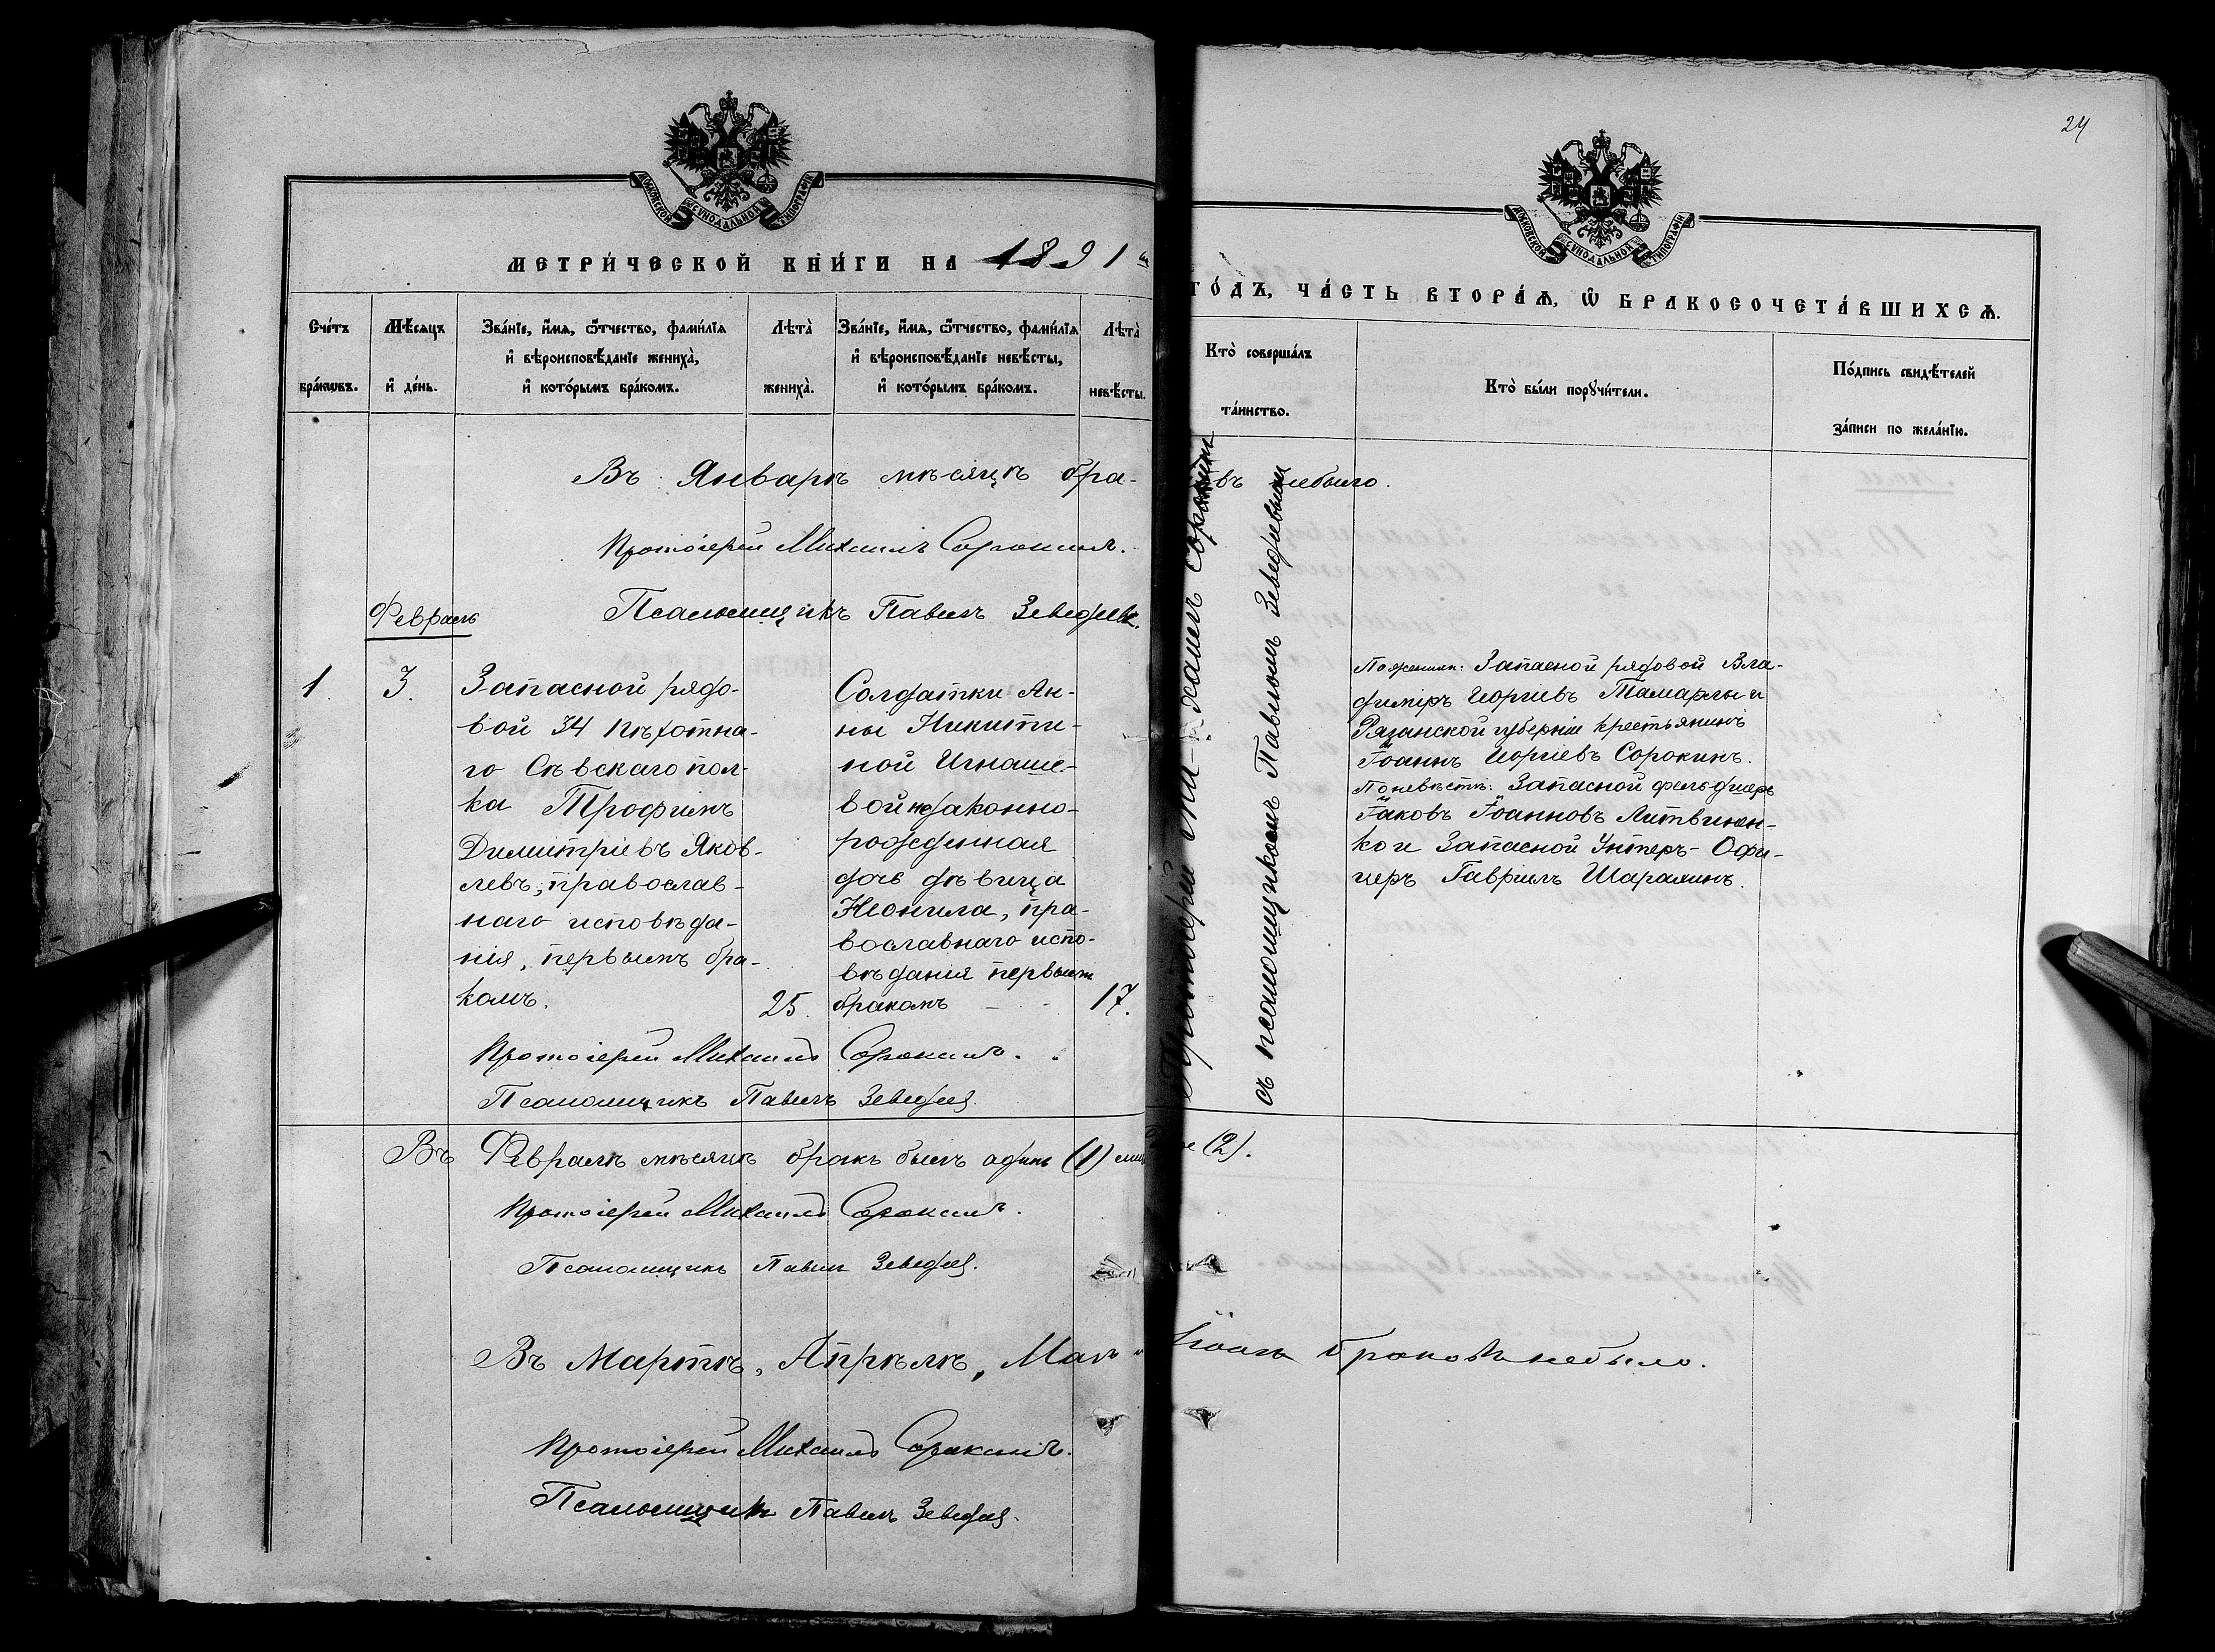 24
МОСКОВСКОЙ СѴНОДАЛЬНОЙ ТИПОГРАФІИ
МОСКОВСКОЙ СѴНОДАЛЬНОЙ ТИПОГРАФІИ
МЕТРИ́ЧЕСКОЙ КНИ́ГИ НА 1891
ГО́ДЪ, ЧА́СТЬ ВТОРА́Я, Ѡ҆ БРАКОСОЧЕТА́ВШИХСѦ.
Сче́тъ бра́кѡвъ.
Мѣ́сяцъ и҆ де́нь.
Зва́нїе, и҆́мя, ѻ҆́тчество, фами́лїя и҆ вѣроисповѣ́данїе жениха̀, и҆ кото́рымъ бра́комъ.
Лѣта̀ жениха̀.
Зва́нїе, и҆́мя, ѻ҆́тчество, фами́лїя и҆ вѣроисповѣ́данїе невѣ́сты, и҆ кото́рымъ бра́комъ.
Лѣта̀ невѣ́сты.
Кто̀ соверша́лъ та́инство.
Кто̀ бы́ли порꙋчи́тели.
По́дпись свидѣ́телей за́писи по жела́нїю.
Въ Январѣ мѣсяцѣ бра-
въ небыло.
Протоіерей Михаилъ Сорокинъ.
Псаломщикъ Павелъ Зеведеевъ.
Февраль
1.
3.
Запасной рядо-
вой 34 Пѣхотна-
го Сѣвскаго пол-
ка Трофимъ
Димитріевъ Яков-
левъ, православ-
наго исповѣда-
нія, первымъ бра-
комъ.
25.
Солдатки Ан-
ны Никити-
ной Игнаше-
вой незаконно-
рожденная
дочь дѣвица
Неонила, пра-
вославнаго испо-
вѣданія первымъ
бракомъ
17.
Протоіерей Михаилъ Сорокинъ
съ псаломщикомъ Павломъ Зеведеевымъ
По женихѣ: Запасной рядовой Вла-
диміръ Георгіевъ и
Рязанской губерніи крестьянинъ
Іоаннъ Георгіевъ Сорокинъ.
По невѣстѣ: Запасной фельдшеръ
Іаковъ Іоанновъ Литвинен-
ко и Запасной Унтеръ-Офи-
церъ Гавріилъ Шарахинъ.
Протоіерей Михаилъ Сорокинъ.
Псаломщикъ Павелъ Зеведеев
Въ Февралѣ мѣсяцѣ бракъ былъ одинъ (1) (2).
Протоіерей Михаилъ Сорокинъ.
Псаломщикъ Павелъ Зеведеев.
Въ Мартѣ, Апрѣлѣ, Маѣ и Іюнѣ браковъ небыло.
Протоіерей Михаилъ Сорокинъ.
Псаломщикъ Павелъ Зеведеев.